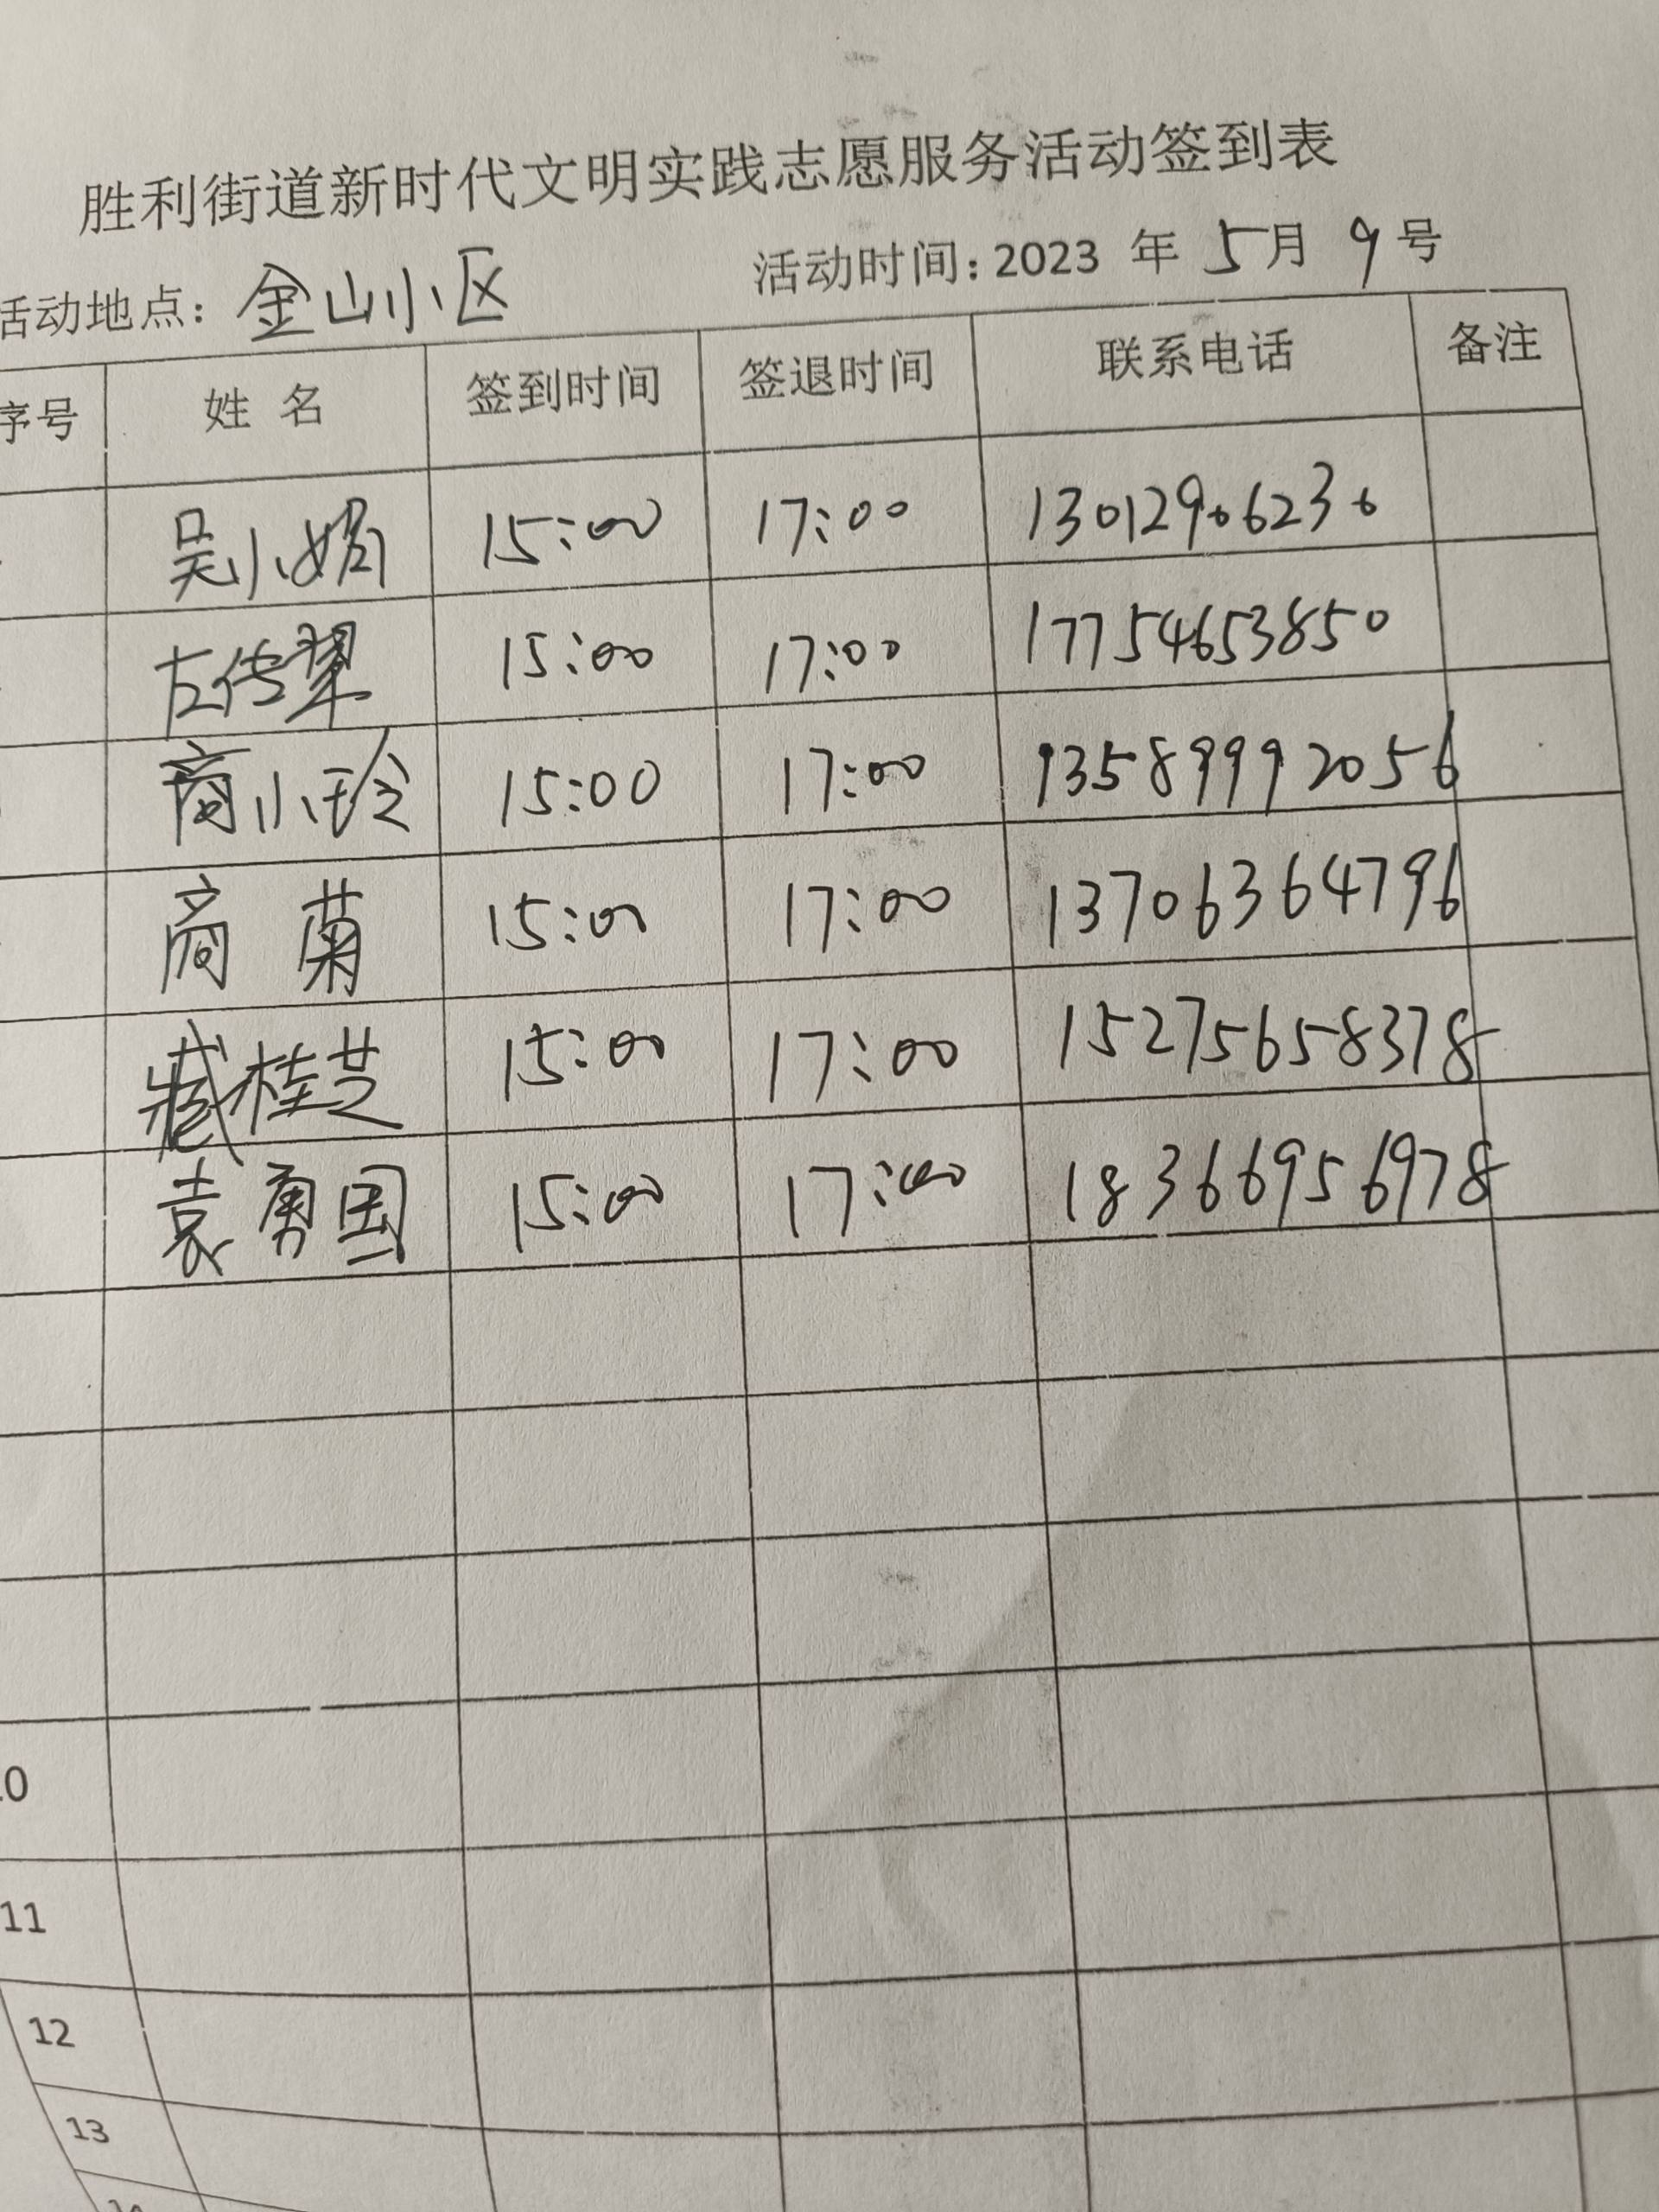 胜利街道新时代文明实践志愿服务活动签到表
活动地点：金山小区 活动时间：2023 年 5月 9号
序号 姓 名 签到时间 签退时间 联系电话 备注
吴小娟 15:00 17:00 13012906230
左传翠 15:00 17:00 17754653850
商小玲 15:00 17:00 13589992056
商 菊 15:00 17:00 13706364796
臧桂芝 15:00 17:00 15275658378
袁勇国 15:00 17:00 18366956978
10
11
12
13